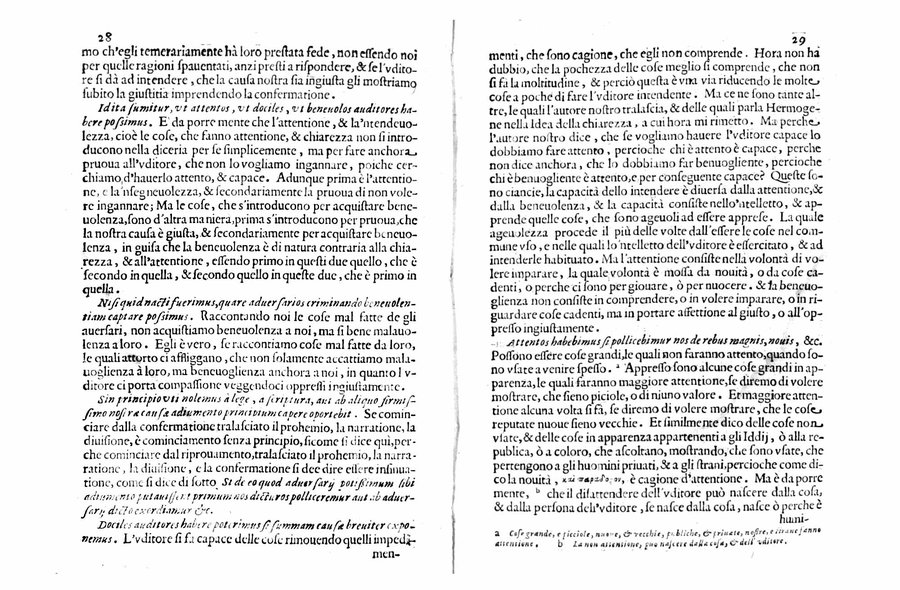 28
mo ch'egli temerariamente hà loro prestata fede, non essendo noi
per quelle ragioni spauentati, anzi presti a rispondere, & se l'vdito-
re si dà ad intendere, che la causa nostra sia ingiusta gli mostriamo
subito la giustitia imprendendo la confermatione.
Id ita sumitur, vt attentos, vt dociles, vt beneuolos auditores ha-
bere possimus. E' da porre mente che l'attentione, & la'ntendeuo-
lezza, cioè le cose, che fanno attentione, & chiarezza non si intro-
ducono nella diceria per se simplicemente, ma per fare anchora
pruoua all'vditore, che non lo vogliamo ingannare, poiche cer-
chiamo d'hauerlo attento, & capace. Adunque prima è l'attentio-
ne, e la'nsegneuolezza, & secondariamente la pruoua di non vole-
re ingannare; Ma le cose, che s'introducono per acquistare bene-
uolenza, sono d'altra maniera, prima s'introducono per pruoua, che
la nostra causa è giusta, & secondariamente per acquistare beneuo-
lenza, in guisa che la beneuolenza è di natura contraria alla chia-
rezza, & all'attentione, essendo primo in questi due quello, che è
secondo in quella, & secondo quello in queste due, che è primo in
quella.
Nisi quid nacti fuerimus, quare aduersarios criminando beneuolen-
tiam captare possimus. Raccontando noi le cose mal fatte de gli
auersari, non acquistiamo beneuolenza a noi, ma si bene malauo-
lenza a loro. Egli è vero, se raccontiamo cose mal fatte da loro,
le quali attorto ci affliggano, che non solamente accattiamo mala-
uoglienza à loro, ma beneuoglienza anchora a noi, in quanto l'v-
ditore ci porta compassione veggendoci oppressi ingiustamente.
Sin principio vti nolemus à lege, a scriptura, aut ab aliquo firmis-
simo nostræ causæ adiumento principium capere oportebit. Se comin-
ciare dalla confermatione tralasciato il prohemio, la narratione, la
diuisione, è cominciamento senza principio, sicome si dice qui, per-
che cominciare dal riprouamento, tralasciato il prohemio, la narra-
ratione, la diuisione, e la confermatione si dee dire essere insinua-
tione, come si dice di sotto. St de eo quod aduersarij potissimum sibi
adiumento putauissent primum nos dicturos polliceremur aut ab aduer-
sarij dicto exordiamur &c.
Dociles auditores habere poterimus si summam causæ breuiter expo-
nemus. L'vditore si fa capace delle cose rimouendo quelli impedi-
men-
29
menti, che sono cagione, che egli non comprende. Hora non hà
dubbio, che la pochezza delle cose meglio si comprende, che non
si fa la moltitudine, & perciò questa è vna via riducendo le molte
cose a poche di fare l'vditore intendente. Ma ce ne sono tante al-
tre, le quali l'autore nostro tralascia, & delle quali parla Hermoge-
ne nella Idea della chiarezza, a cui hora mi rimetto. Ma perche
l'autore nostro dice, che se vogliamo hauere l'vditore capace lo
dobbiamo fare attento, percioche chi è attento è capace, perche
non dice anchora, che lo dobbiamo far benuogliente, percioche
chi è benuogliente è attento, e per conseguente capace? Queste so-
no ciancie, la capacità dello intendere è diuersa dalla attentione, &
dalla beneuolenza, & la capacità consiste nello'ntelletto, & ap-
prende quelle cose, che sono ageuoli ad essere apprese. La quale
ageuolezza procede il più delle volte dall'essere le cose nel com-
mune vso, e nelle quali lo'ntelletto dell'vditore è essercitato, & ad
intenderle habituato. Ma l'attentione consiste nella volontà di vo-
lere imparare, la quale volontà è mossa da nouità, o da cose ca-
denti, o perche ci sono per giouare, ò per nuocere. & la beneuo-
glienza non consiste in comprendere, o in volere imparare, o in ri-
guardare cose cadenti, ma in portare affettione al giusto, o all'op-
presso ingiustamente.
Attentos habebimus si pollicebimur nos de rebus magnis, nouis, &c.
Possono essere cose grandi, le quali non faranno attento, quando so-
no vsate a venire spesso. a Appresso sono alcune cose grandi in ap-
parenza, le quali faranno maggiore attentione, se diremo di volere
mostrare, che sieno piciole, o di niuno valore. Et maggiore atten-
tione alcuna volta si fà, se diremo di volere mostrare, che le cose
reputate nuoue sieno vecchie. Et similmente dico delle cose non
vsate, & delle cose in apparenza appartenenti a gli Iddij, ò alla re-
publica, ò a coloro, che ascoltano, mostrando, che sono vsate, che
pertengono a gli huomini priuati, & a gli strani, percioche come di-
co la nouità, , è cagione d'attentione. Ma è da porre
mente, b che il disattendere dell'vditore può nascere dalla cosa,
& dalla persona dell'vditore, se nasce dalla cosa, nasce ò perche è
humi-
a Cose grande, e picciole, nuoue, & vecchie, publiche, & priuate, nostre, e strane fanno
attentione, b La non attentione, può nascere dalla cosa, & dell'vditore.